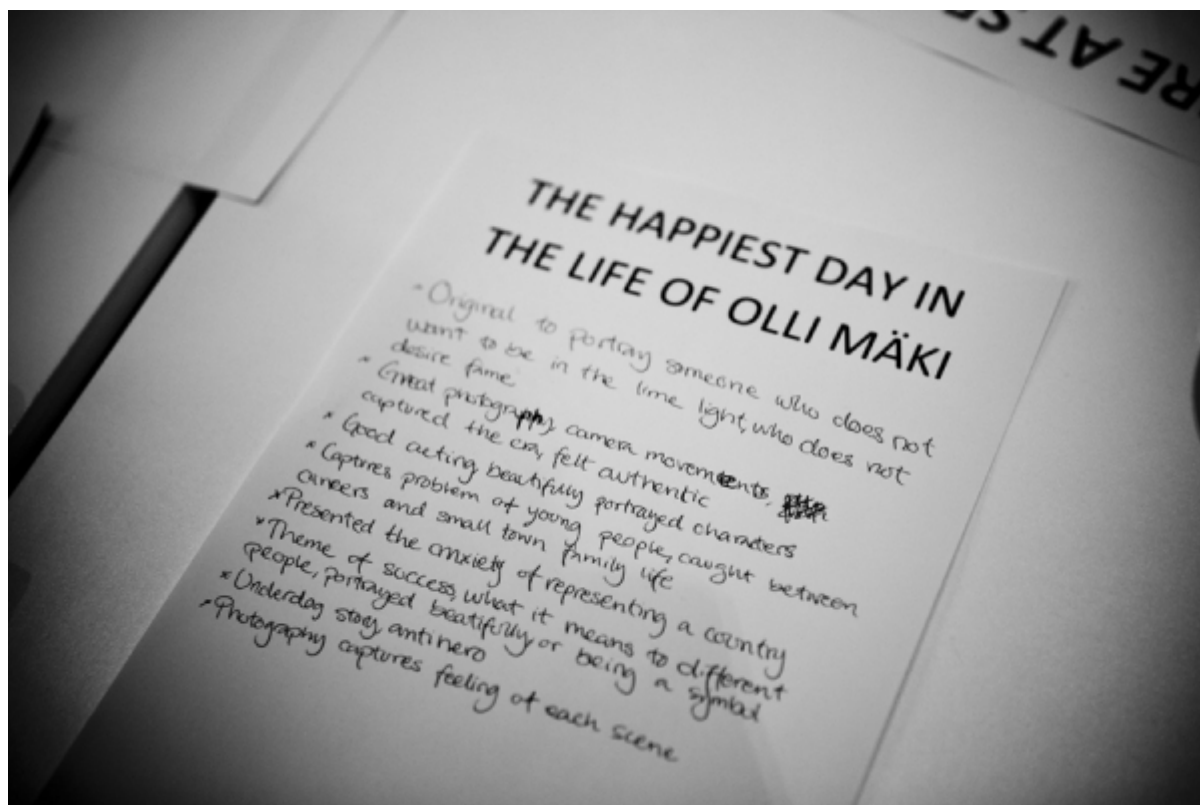 RE AT S
THE HAPPIEST DAY IN
THE LIFE OF OLLI MÄKI
* Original to portray someone who does not
want to be in the lime light, who does not
desire fame
* Great photography, camera movements,
captured the era, felt authentic
* Good acting beautifully portrayed characters
* Captures problem of young people, caught between
careers and small town family life
* Presented the anxiety of representing a country
* Theme of success, what it means to different
people, portrayed beatifully or being a symbol
* Underdog story, antihero
* Photography captures feeling of each scene